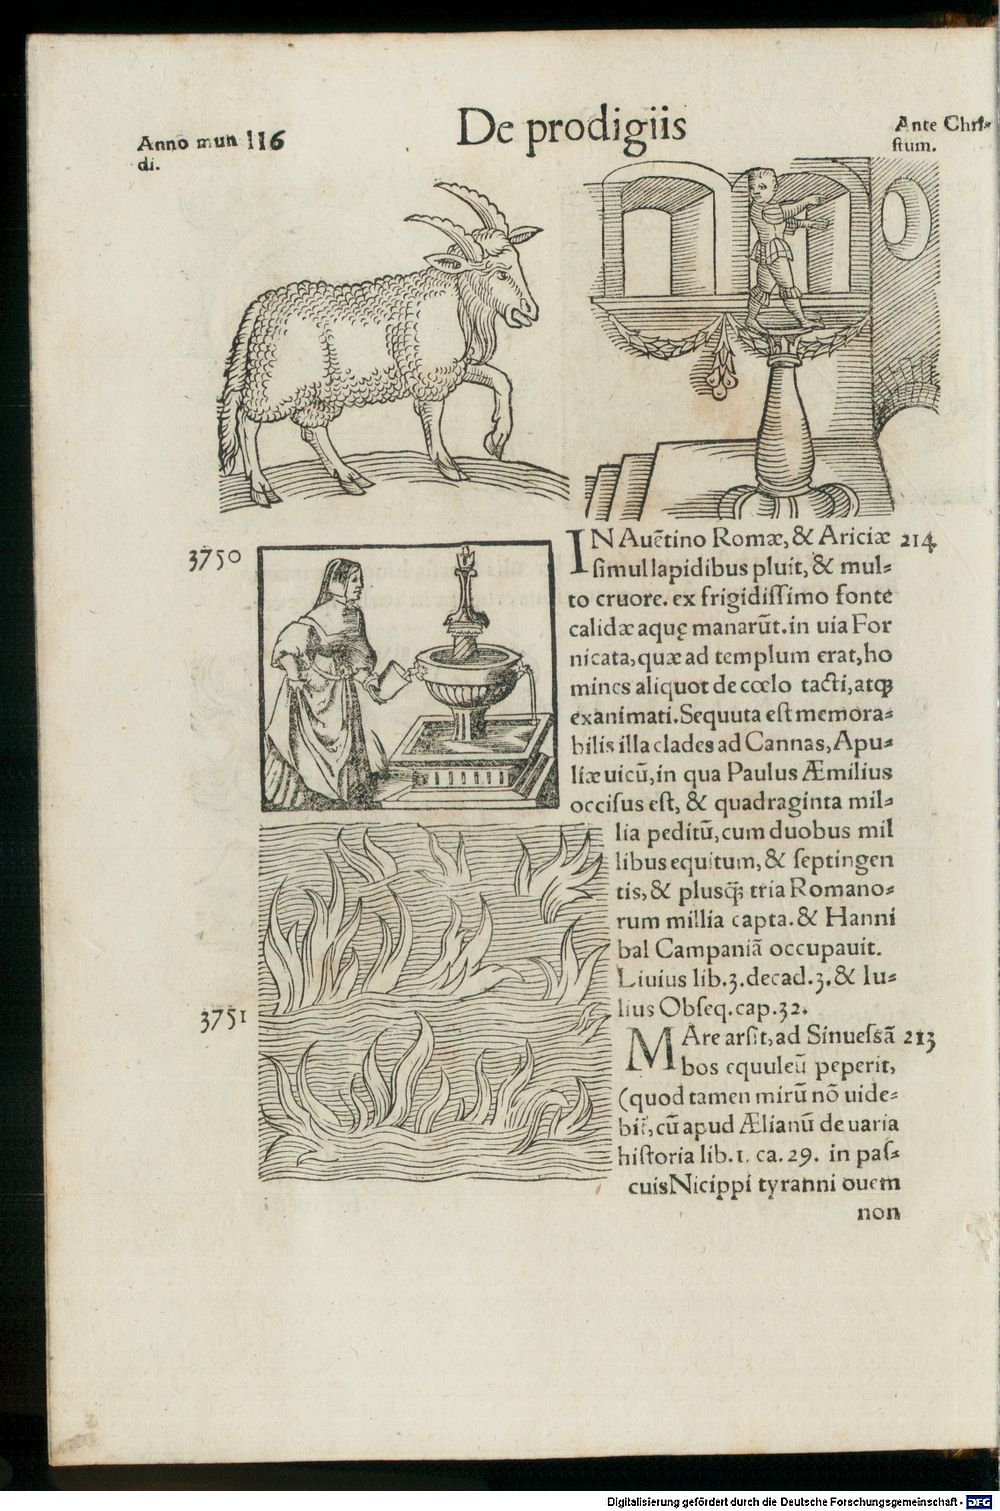 Anno mun 116
di.
De prodigiis
Ante Chri⸗
ſtum.
3750
IN Auẽtino Romæ, & Ariciæ 214
ſimul lapidibus pluit, & mul⸗
to cruore. ex frigidiſſimo fonte
calidæ aquę manarũt. in uia For
nicata, quæ ad templum erat, ho
mines aliquot de cœlo tacti, atqꝫ
exanimati. Sequuta eſt memora⸗
bilis illa clades ad Cannas, Apu⸗
liæ uicũ, in qua Paulus Æmilius
occiſus eſt, & quadraginta mil⸗
lia peditũ, cum duobus mil
libus equitum, & ſeptingen
tis, & pluſq̃ꝫ tria Romano⸗
rum millia capta. & Hanni
bal Campaniã occupauit.
Liuius lib. 3. decad. 3. & Iu⸗
lius Obſeq. cap. 32.
3751
MAre arſit, ad Sinueſsã 213
bos equuleũ peperit,
(quod tamen mirũ nõ uide⸗
bit̃, cũ apud Ælianũ de uaria
hiſtoria lib. 1. ca. 29. in paſ⸗
cuis Nicippi tyranni ouem
non
Digitalisierung gefördert durch die Deutsche Forschungsgemeinschaft - DFG